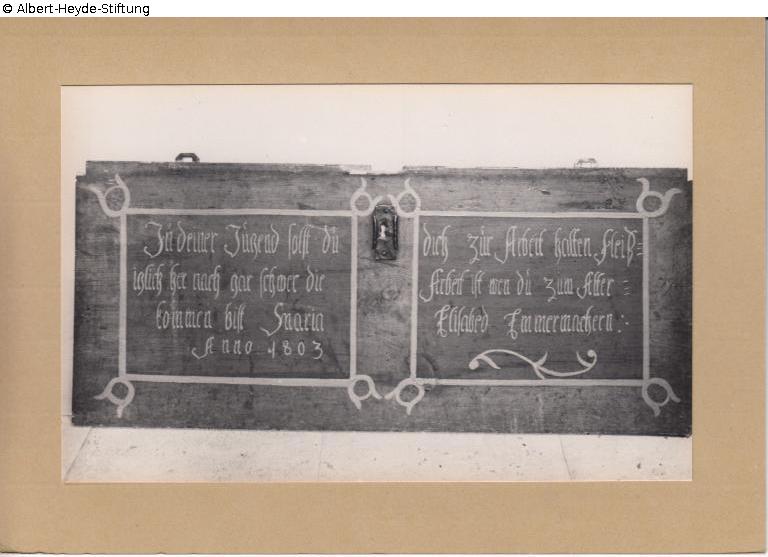 © Albert-Heyde-Stiftung
In deiner Jugend solst du dich zur Arbeit halten Fleiß=
iglich her nach gar schwer die Arbeit ist wen du zum Alter=
kommen bist Maria Elisabed Emmermachern :
Anno 1803